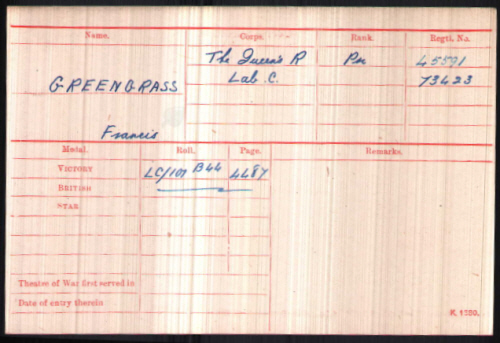 Name. Corps. Rank. Regtl. No.
The Queen's R Pte 45591
GREENGRASS Lab. C. 73423
Francis
Medal. Roll. Page. Remarks.
VICTORY LC/101 B44 4487
BRITISH
STAR
Theatre of War first served in
Date of entry therein
K. 1380.